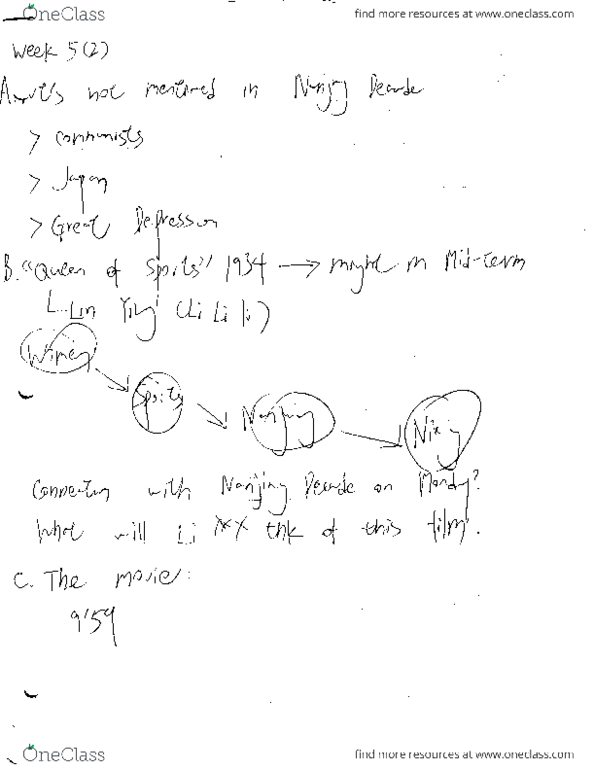 OneClass
find more resources at www.oneclass.com
Week 5(2)
not mentioned in Nanjing Decade
> Communists
> Japan
> Great Depression
B. "Queen of Sports" 1934 → might in Mid-term
L. Lin Ying (Li Li li)
Sports
Nanjing
Connection with Nanjing Decade on Monday?
What will Li XX thk of this film.
C. The movie:
9'59
OneClass
find more resources at www.oneclass.com